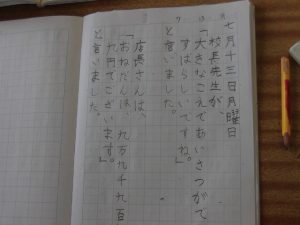 七月十三日月曜日
校長先生が、
「大きなこえであいさつがで
すばらしいですね。」
と言いました。
店長さんは、
「おねだんは、九万九千九百
九円でございます。」
と言いました。